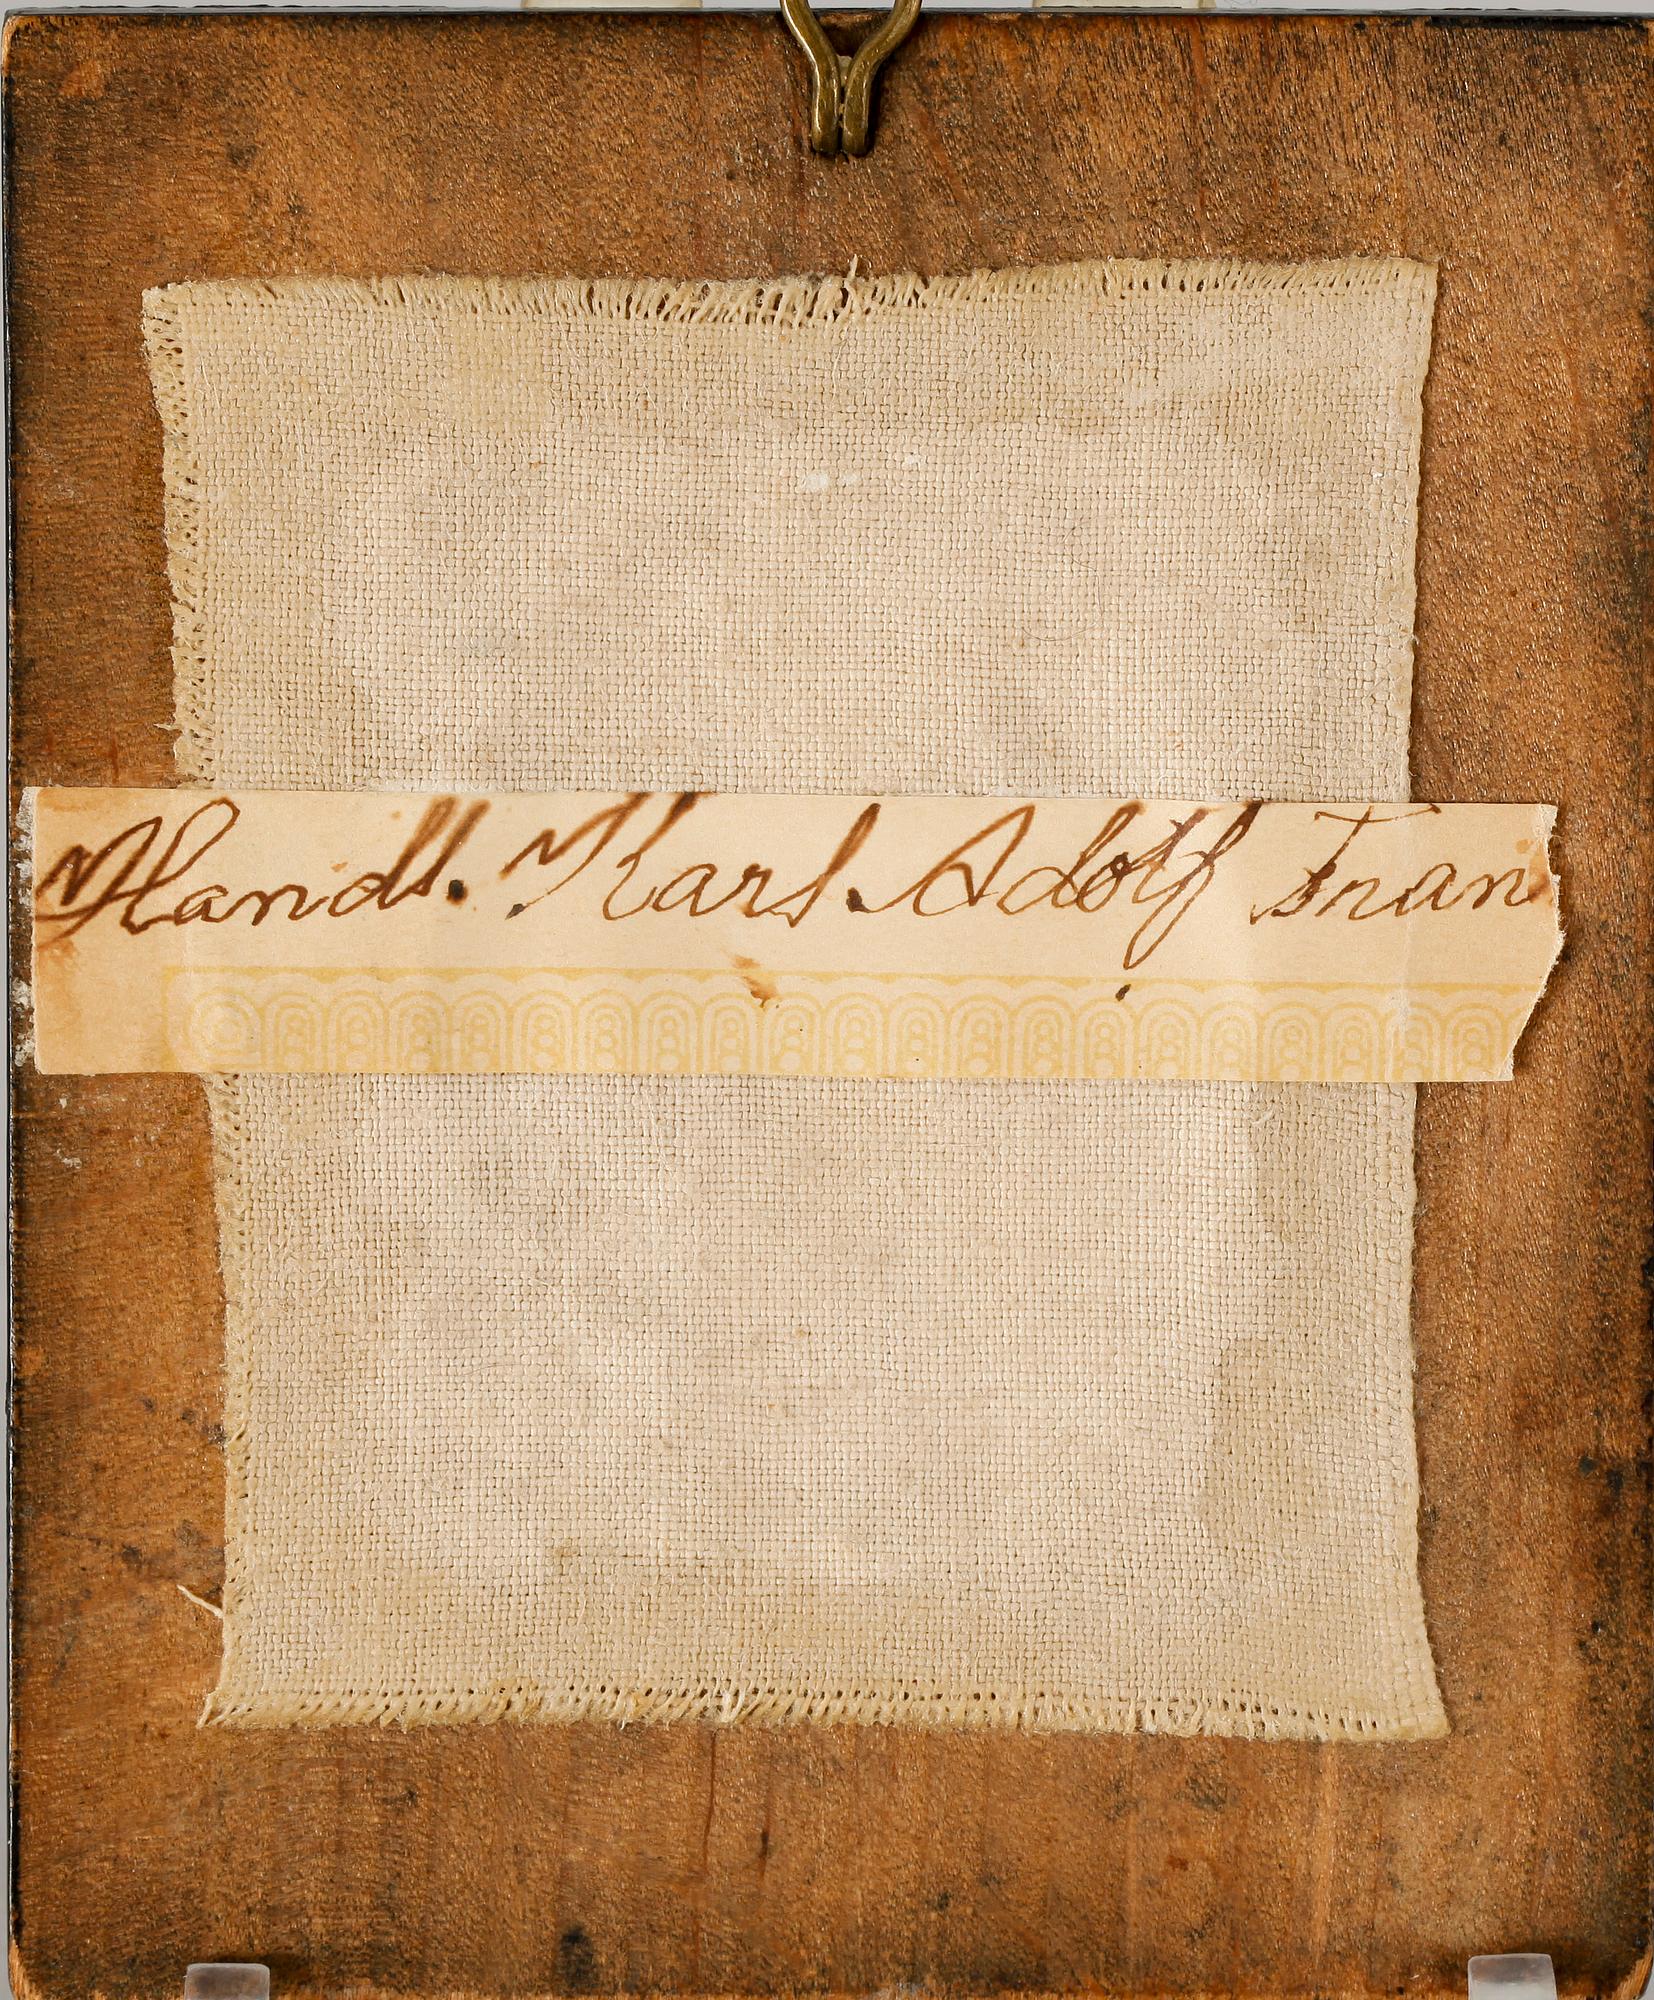 Handl. Karl. Adolf Fran